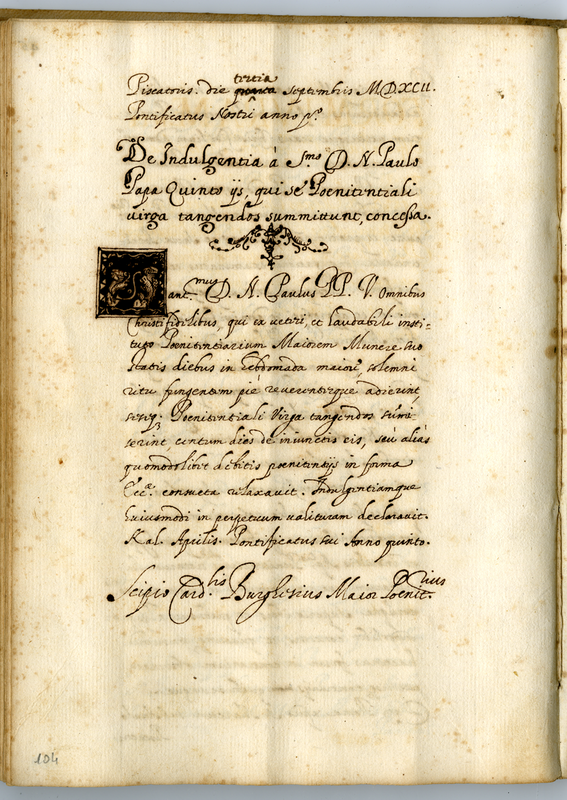 tertia
Piscatoris. die quarta septembris M.D.XCII.
Pontificatus Nostri anno p.º
De Indulgentia à S.mo D. N. Paulo
Papa Quinto ijs, qui se Poenitentiali
uirga tangendos summittunt, concessa.
Sanct.mus D. N. Paulus PP. V. Omnibus
Christifidelibus, qui ex veteri, et laudabili insti-
tuto Poenitentiarium Maiorem Munere suo
statis diebus in hebdomada maiori solemni
ritu fungentem pié reuerenterque adierint
seseq; Poenitentiali Virga tangendos sumi-
serint, centum dies de iniunctis eis, seù aliàs
quomodolibet debitis poenitentijs in forma
Ecc.æ consueta relaxauit. Indulgentiamque
huiusmodi in perpetuum ualituram declarauit.
Kal. Aprilis. Pontificatus sui Anno quinto.
Scipio Card.lis Burghesius Maior Poenit.rius
104